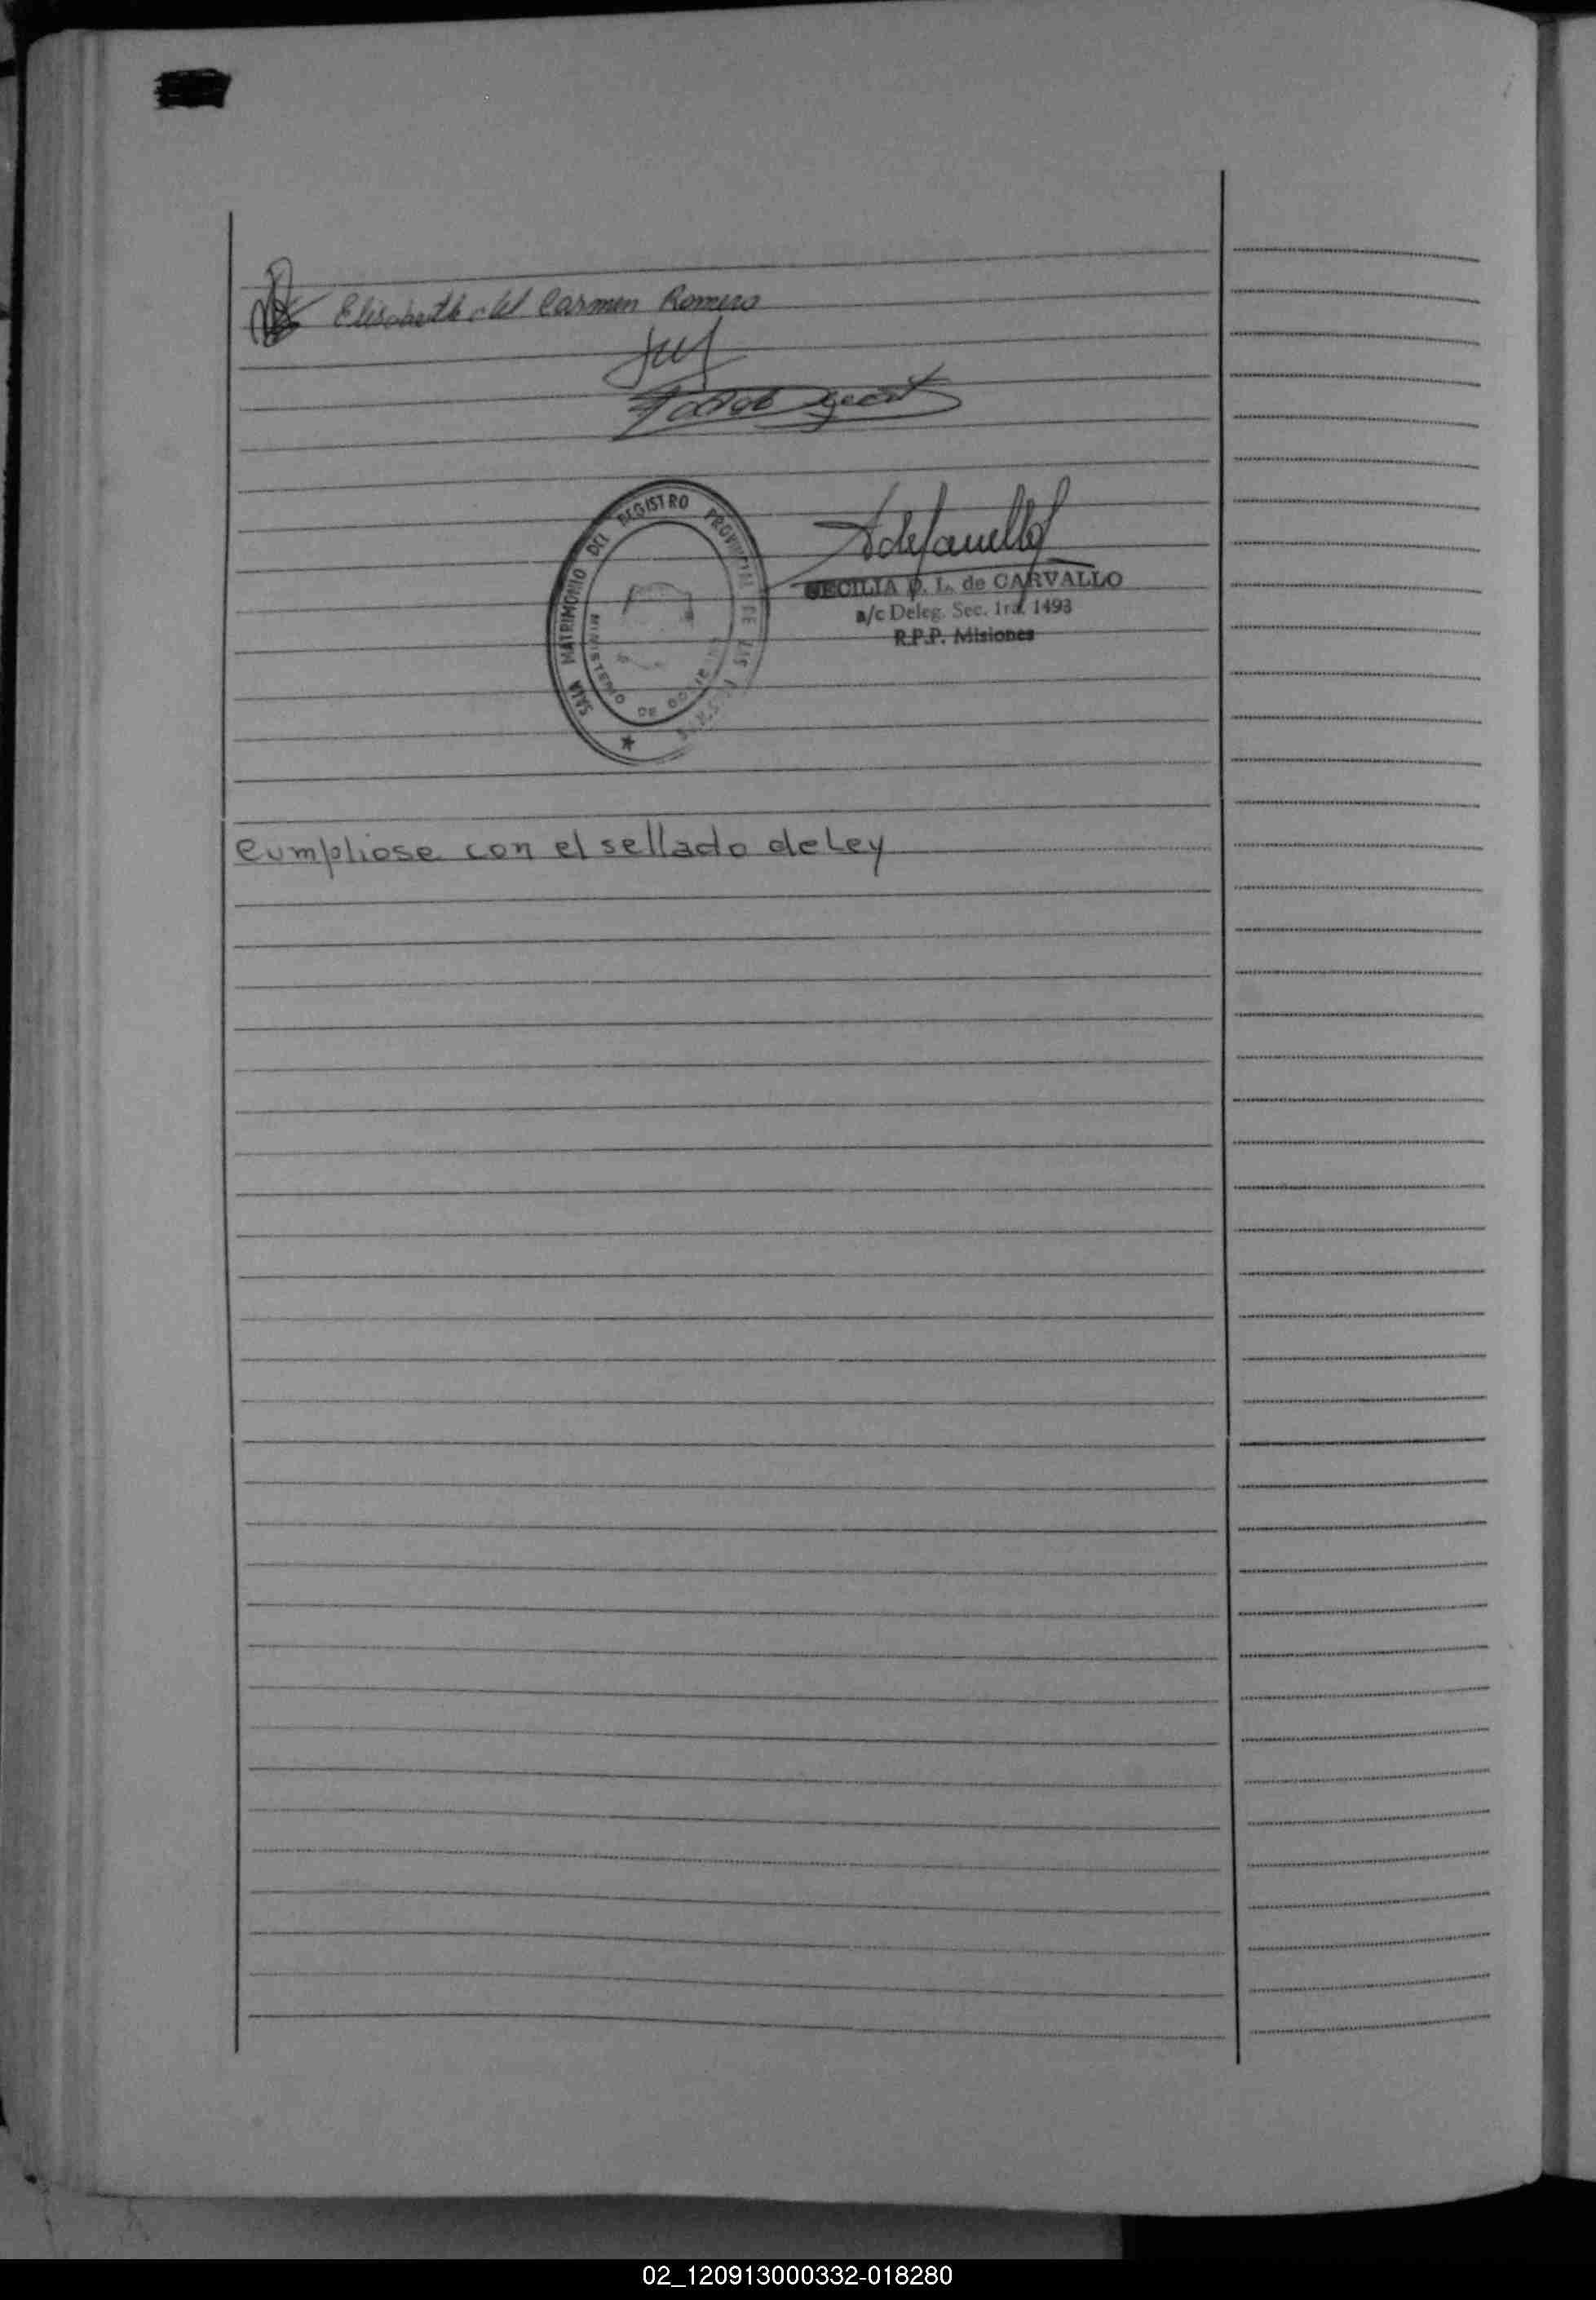 Elisabeth del Carmen Romero
SALA MATRIMONIO DEL REGISTRO PROVINCIAL DE LAS
MINISTERIO DE
CECILIA D. L. de CARVALLO
a/c Deleg. Sec. 1ra. 1493
R.P.P. Misiones
Cumpliose con el sellado de Ley
02_120913000332-018280